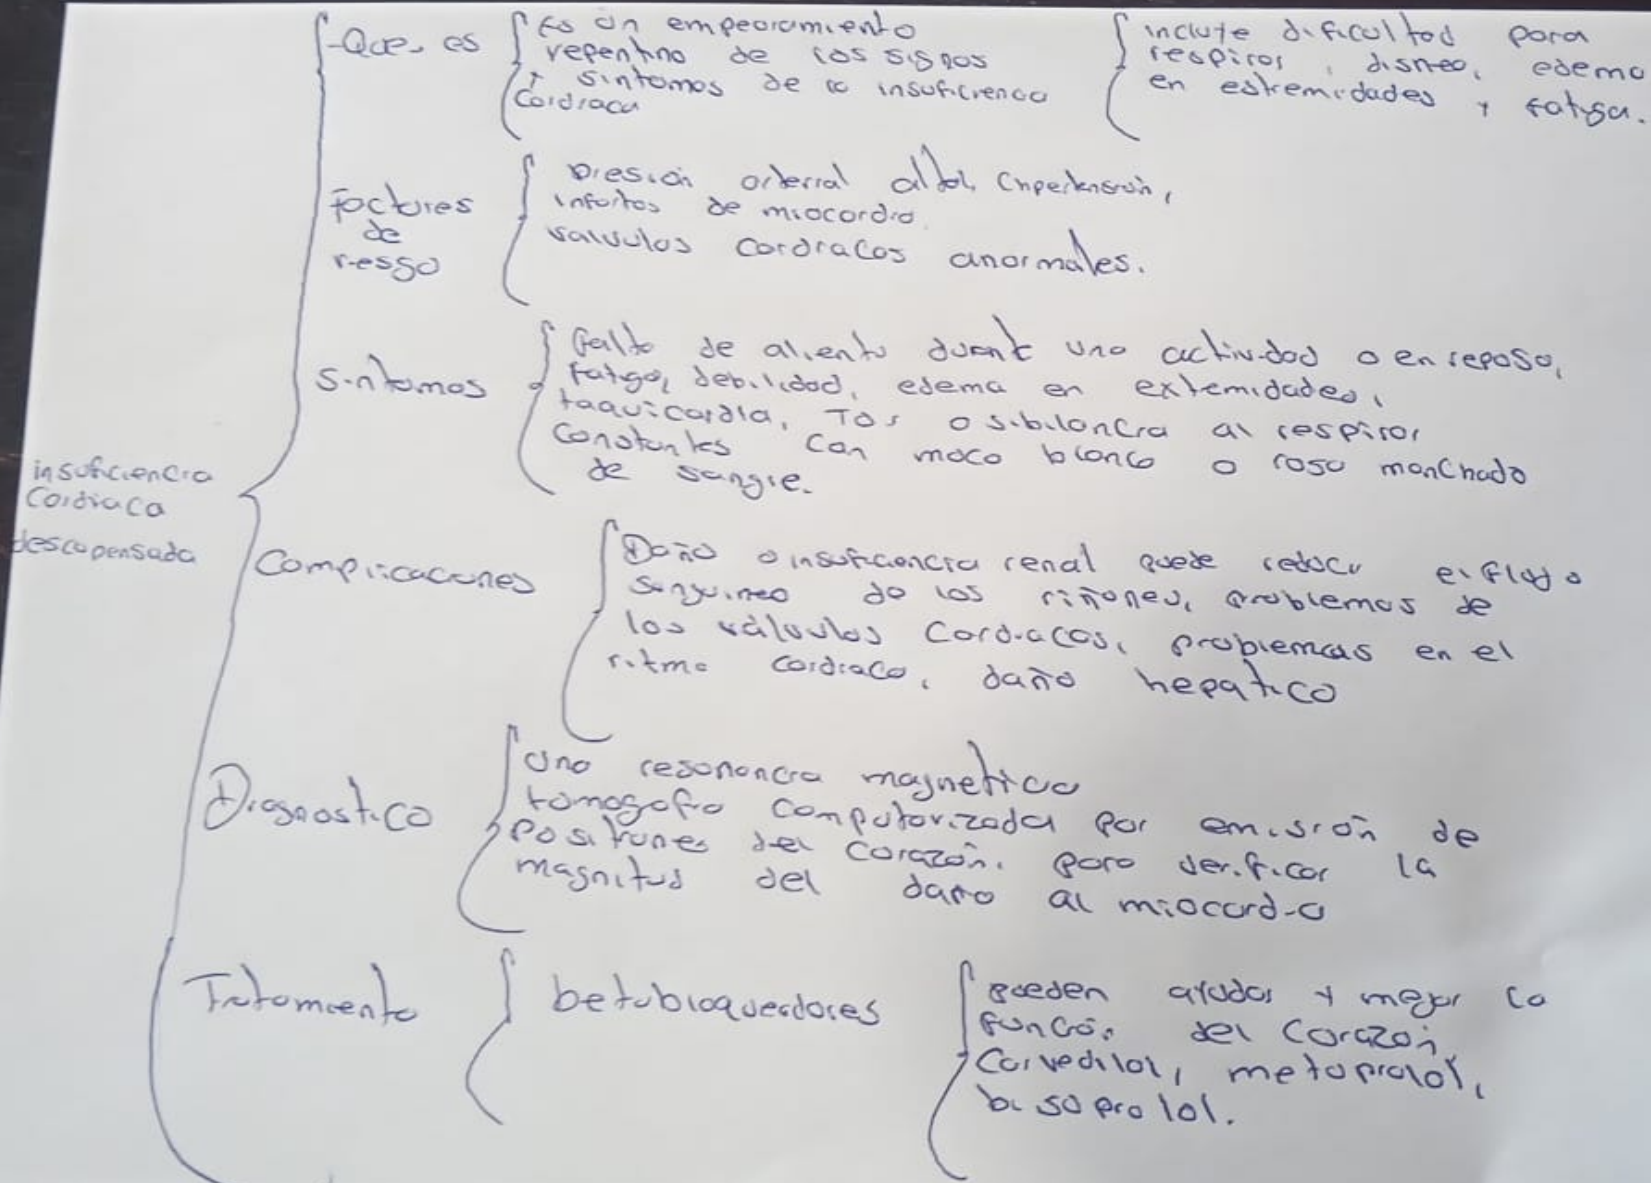 insuficiencia
Cardiaca
descopensada
-Que es
Es un empeoramiento
repentino de los signos
y sintomas de la insuficiencia
Cardiaca
incluye dificultad para
respirar, disnea, edema
en estremidades y fatiga.
Factores
de
riesgo
Presión arterial alta,
infartos de miocardio
valvulas Cardiacas anormales.
Sintomas
Falta de aliento durante una actividad o en reposo,
fatiga, debilidad, edema en extemidades,
taquicardia, Tos o sibilancia al respirar
Constantes Con moco blanco o rosa manchado
de sangre.
Complicaciones
Daño o insuficiencia renal puede reducir el flujo
Sanguineo de los riñones, problemas de
las válvulas Cardiacas, problemas en el
ritmo cardiaco, daño hepatico
Diagnostico
Una resonancia magnetica
tomografia Computarizada por emisión de
Positrones del Corazón. para verificar la
magnitud del daño al miocardio
Tratamiento
betabloqueadores
pueden ayudar y mejor la
función del Corazón
Carvedilol, metoprolol,
bisoprolol.